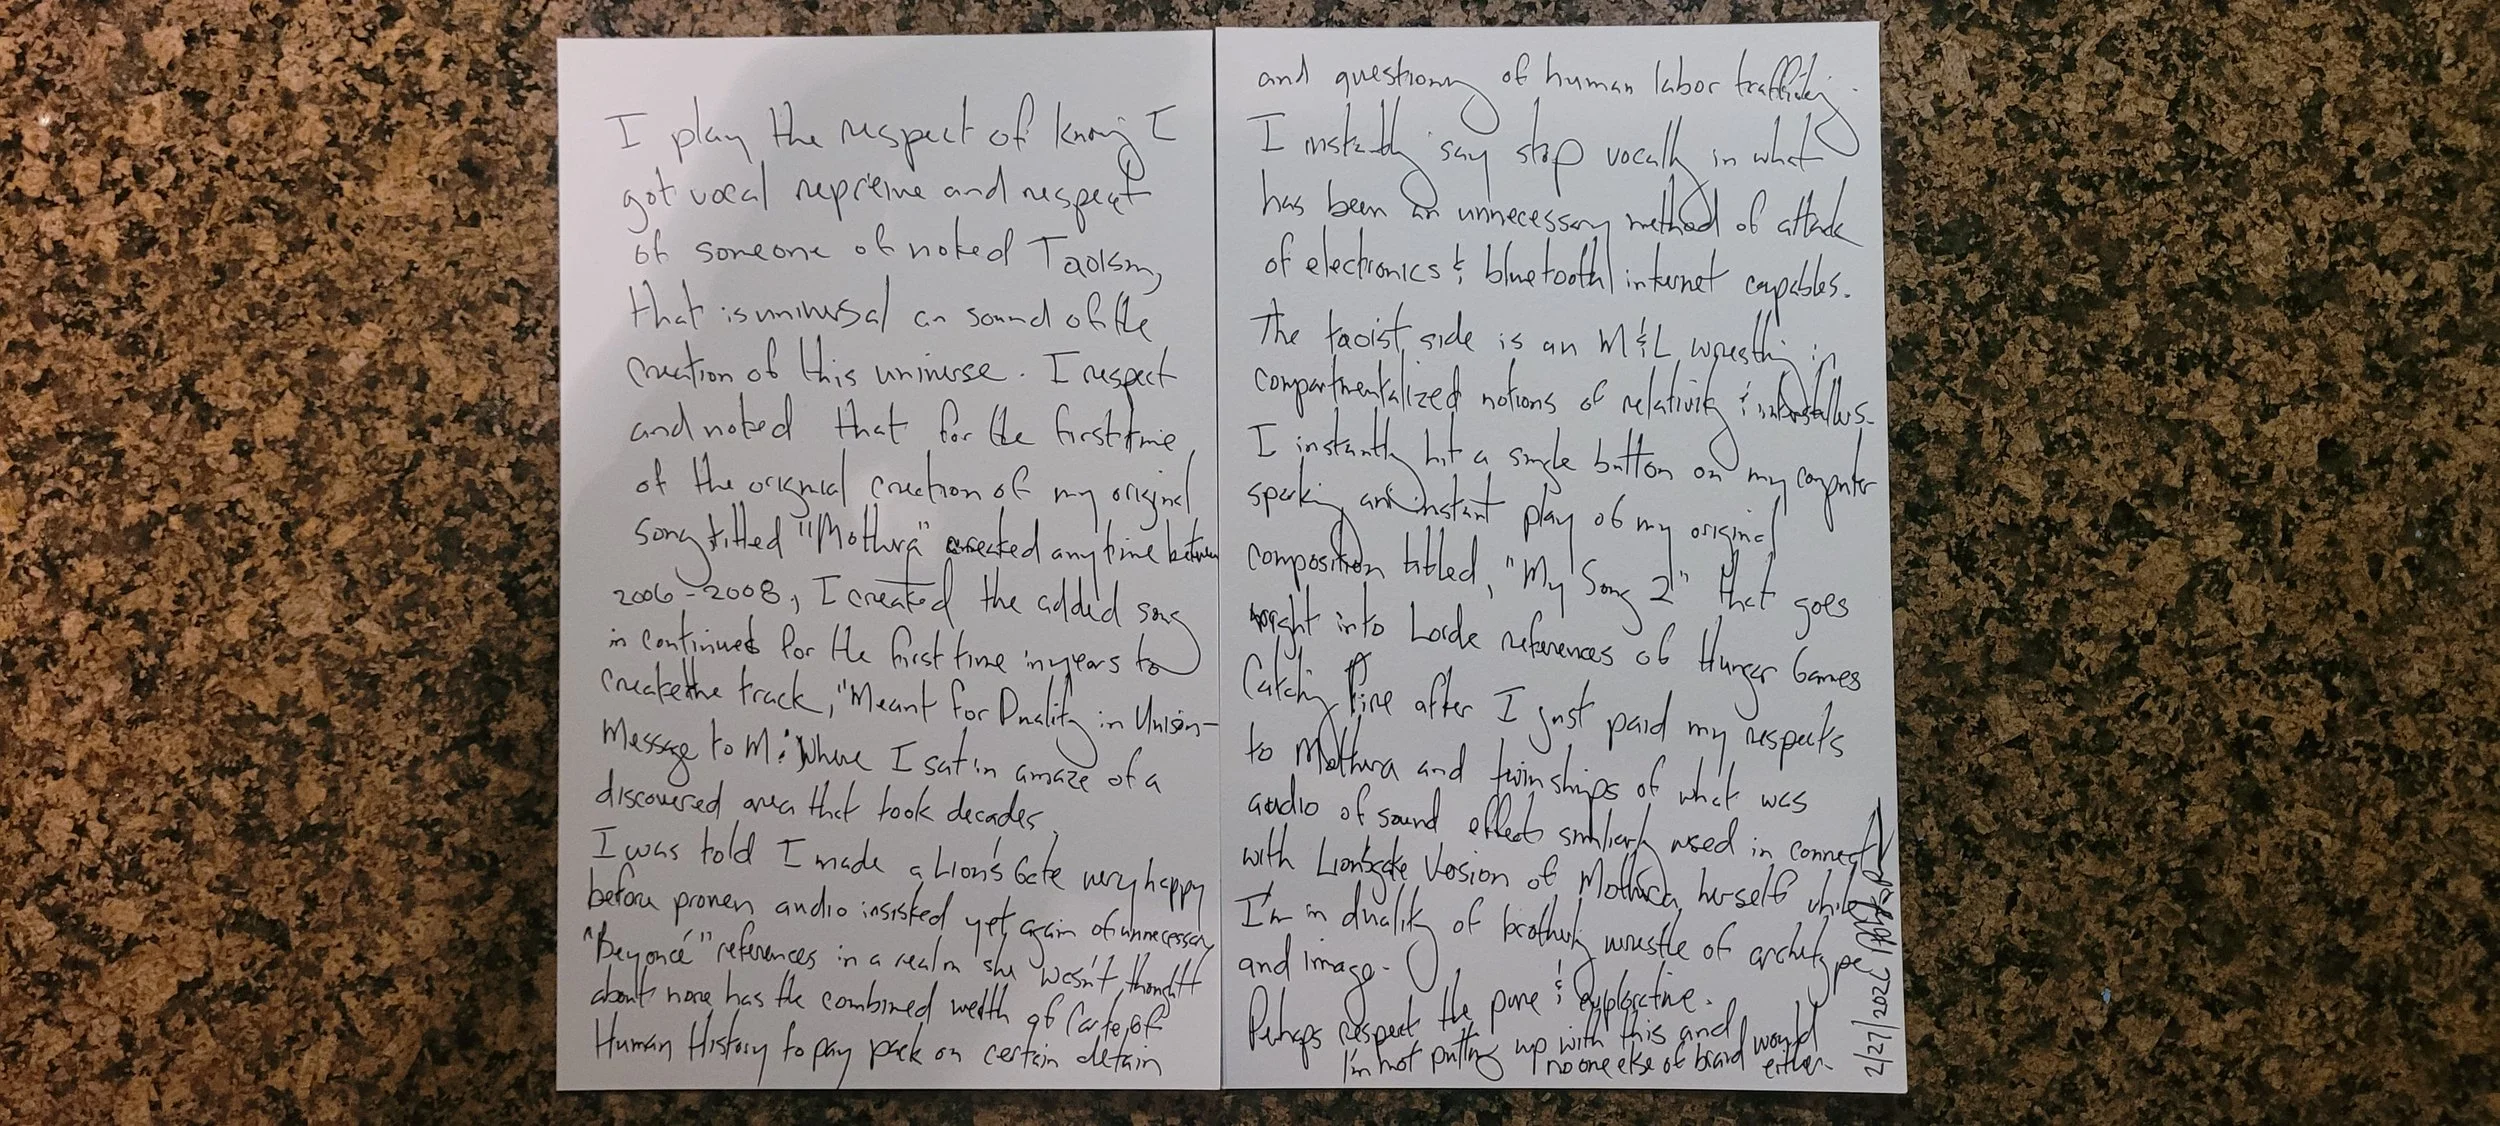 I play the respect of knowing I
got vocal reprieve and respect
of someone of noted Taoism,
that is universal an sound of the
creation of this universe. I respect
and noted that for the first time
of the original creation of my original
song titled "Mothra" created anytime between
2006-2008, I created the added song
in continued for the first time in years to
create the track, "Meant for Duality in Unison-
Message to M: Where I sat in amaze of a
discovered area that took decades.
I was told I made a Lion's Gate very happy
before proven audio insisted yet again of unnecessary
"Beyoncé" references in a realm she wasn't thought
about none has the combined of Carter of
Human History to pay pack on certain detain
and questiony of human labor trafficking.
I instantly say stop vocally in what
has been an unnecessary method of attack
of electronics & bluetooth/internet capables.
The taoist side is an M&L wrestling in
compartmentalized notions of relativity &
I instantly hit a single button on my computer
sparking an instant play of my original
composition titled, "My Song 2" that goes
right into Lorde references of Hunger Games
Catching Fire after I just paid my respects
to Mothra and twinships of what was
audio of sound effects similiarly used in connect
with Lionsgate Version of Mothra herself while
I'm in duality of brotherly wrestle of archetype
and image.
Perhaps respect the pure & explorative.
I'm not putting up with this and
no one else of brand would either.
2/27/202